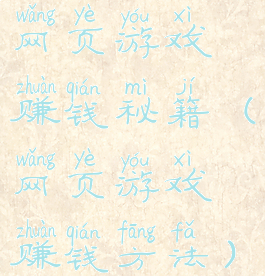 wǎng yè yóu xì
网页游戏
zhuàn qián mì jí
赚钱秘籍（
wǎng yè yóu xì
网页游戏
zhuàn qián fāng fǎ
赚钱方法）